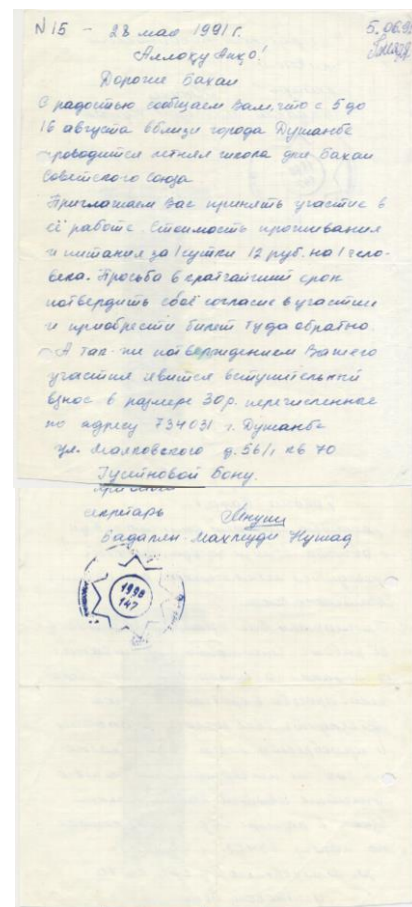 N 15 - 28 мая 1991 г. 5.06.9
Аллоху Абхо!
Дорогие Бахаи
С радостью сообщаем Вам, что с 5 до
16 августа вблизи города Душанбе
проводится летняя школа для Бахаи
Советского Союза
Приглашаем Вас принять участие в
её работе. Стоимость проживания
и питания за 1 сутки 12 руб. на 1 чело-
века. Просьба в кратчайший срок
потвердить своё согласие в участии
и приобрести билет туда обратно.
А так-же потверждением Вашего
участия явится вступительный
взнос в размере 30 р. перечисленное
по адресу 734031 г. Душанбе
ул. Маяковского д. 56/1 кв 70
Гусейновой Бону.
секретарь
Бадапен-Махмуди Нушад
1990
147